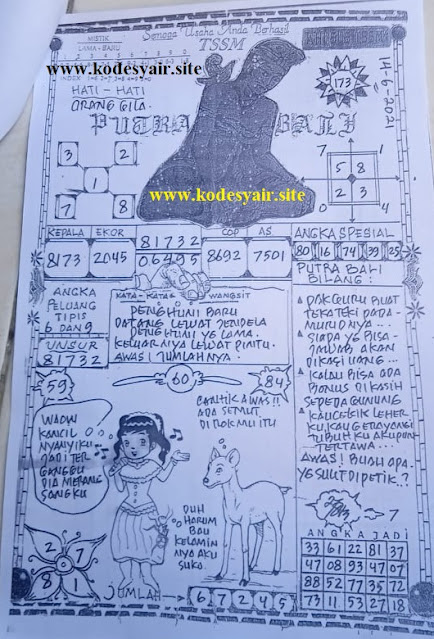 Semoga Usaha Anda Berhasil
MISTIK
LAMA - BARU
TSSM
1 2 3 4 5 6 7 8 9 0
www.kodesyair.site
HATI - HATI
ORANG GILA.
173
14-6-2021
PUTRA BALI
3 2
1
7 8
7 1
5 8
2 3
0 4
www.kodesyair.site
KEPALA EKOR
8173 2045
81732
06495
COP AS
8692 7501
ANGKA SPESIAL
80 16 74 39 25
PUTRA BALI
BILANG:
ANGKA
PELUANG
TIPIS
6 DAN 9
UNSUR
81732
KATA-KATA WANGSIT
PENGHUNI BARU
DATANG LEWAT JENDELA
PENGHUNI YG LAMA
KELUARNYA LEWAT PINTU.
AWAS! JUMLAHNYA.
PAK GURU BUAT
TEKATEKI PADA-
MURIDNYA...
SIAPA YG BISA-
JAWAB AKAN
DIKASI UANG...
KALAU BISA ADA
BONUS DIKASIH
SEPEDA GUNUNG
LEHER
TUBUHKU AKUPUN
TERTAWA...
AWAS! BUAH APA-
YG SULIT DIPETIK.?
59
60
84
WADUW
KANCIL
NYANYIKU
JADI TER
GANGGU
DIA MERANG
SANGKU
CANTIK AWAS!!
ADA SEMUT
DI ROKMU ITU
DUH
HARUM
BAU
KELAMIN
NYA AKU
SUKA.
2 7
8 1
JUMLAH
6 7 2 4 5
7
ANGKA JADI
33 61 22 81 37
47 08 93 47 07
88 52 77 35 72
73 11 53 27 18